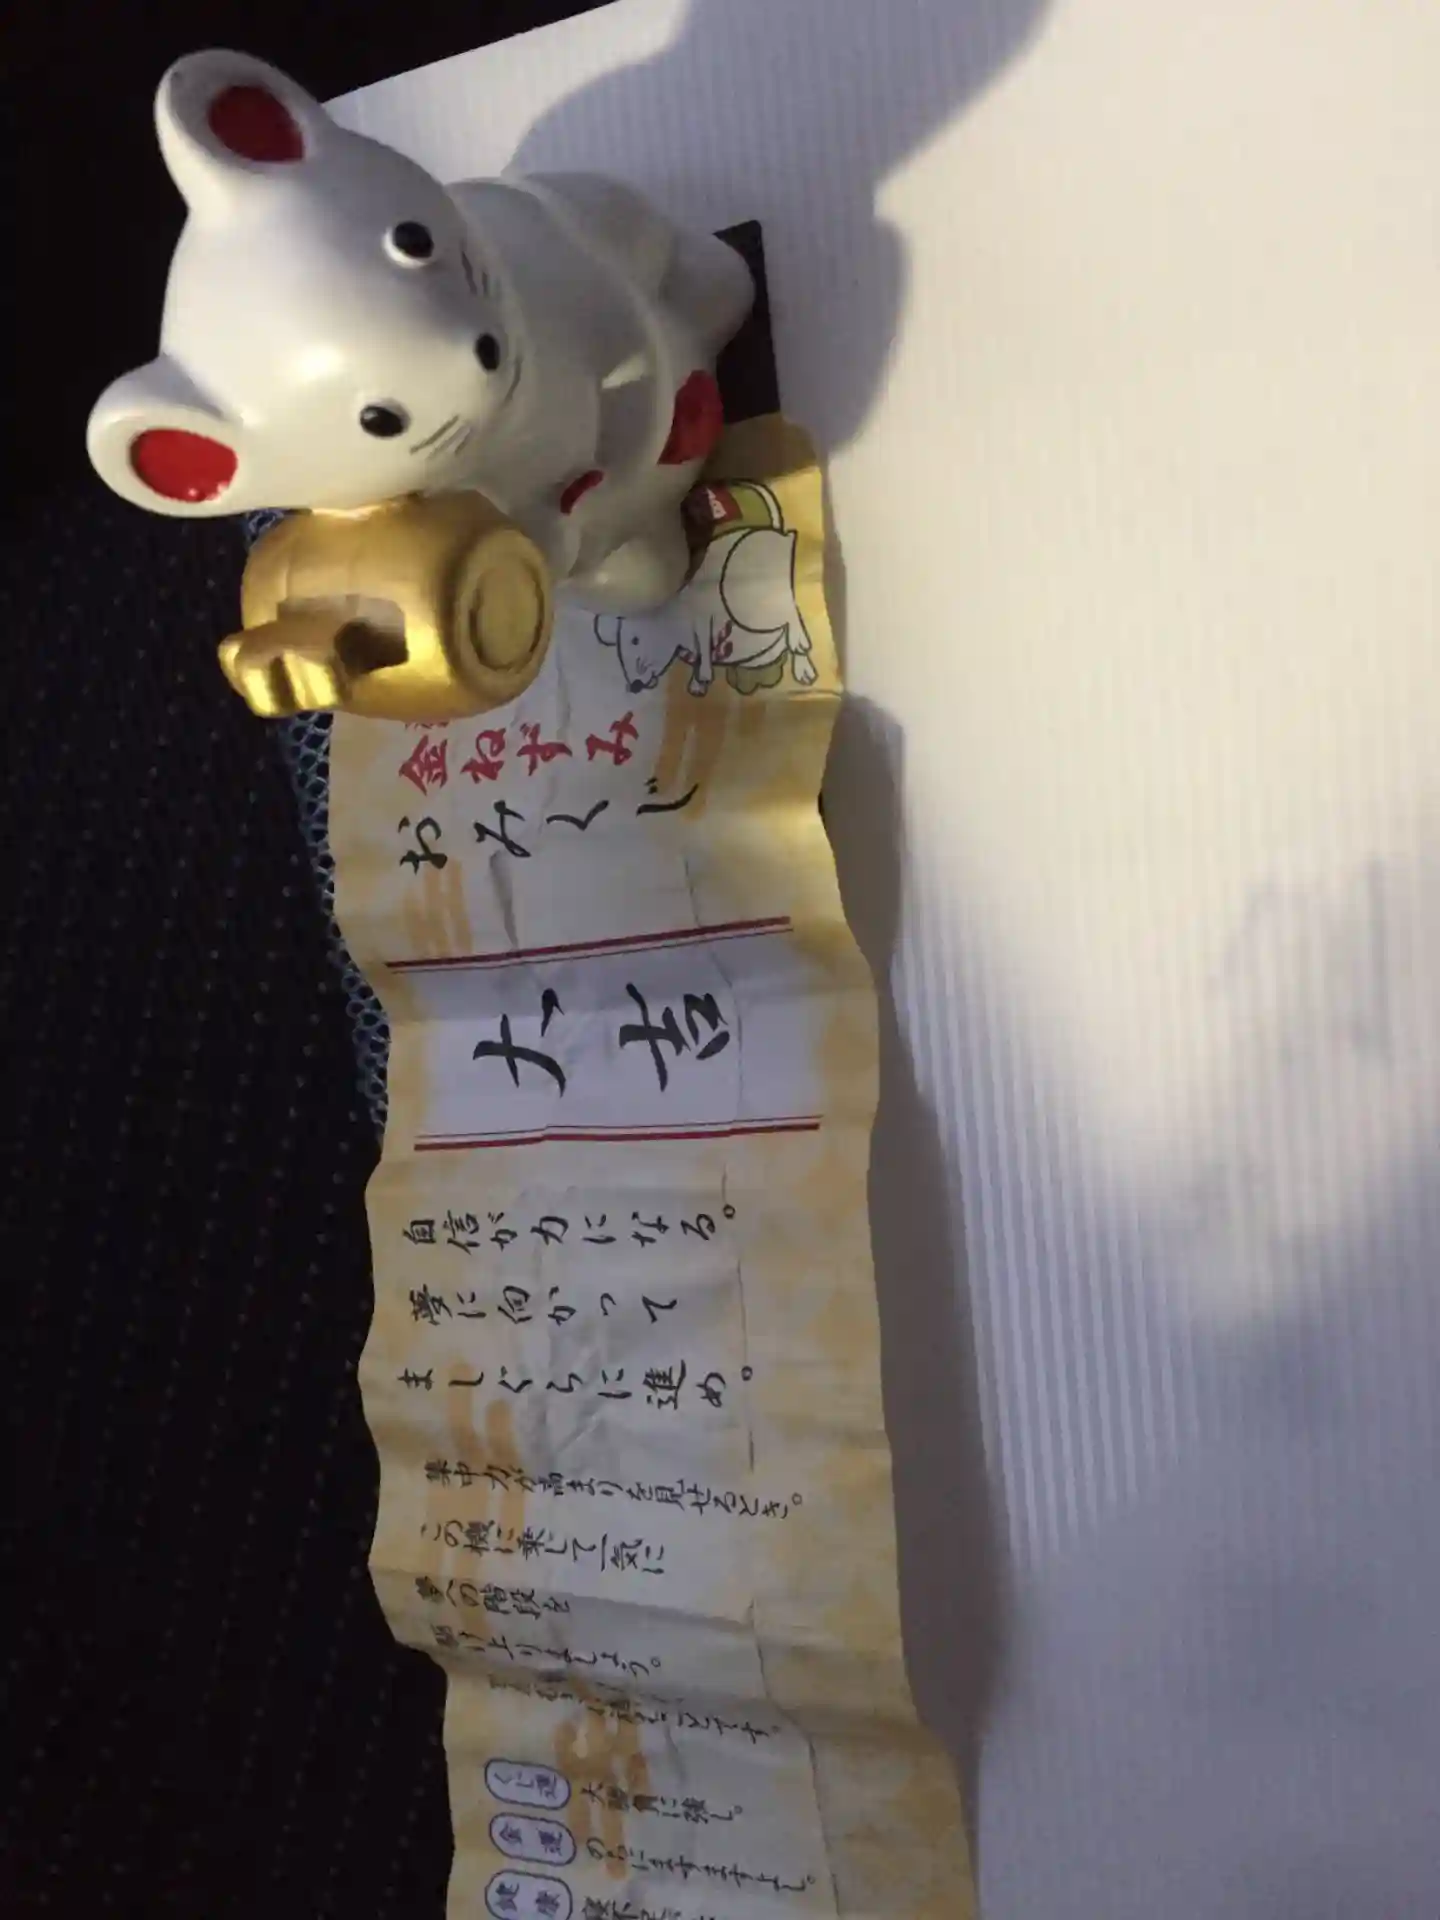 金
ねずみ
おみくじ
大吉
自信が力になる。
夢に向かって
ましぐらに進め。
集中力が高まりを見せるとき。
この機に乗じて一気に
夢への階段を
駆け上りましょう。
くじ運
大勝負に強し。
金運
のちにますますよし。
健康
寝不足